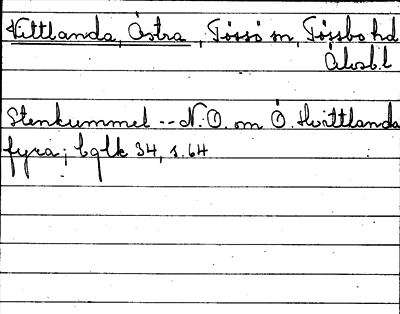 Vittlanda, Östra, Tössö sn, Tössbo hd
Älvsb.l
Stenkummel -- N.O. om Ö. Hvittlanda
fyra; bglk 34, s. 64